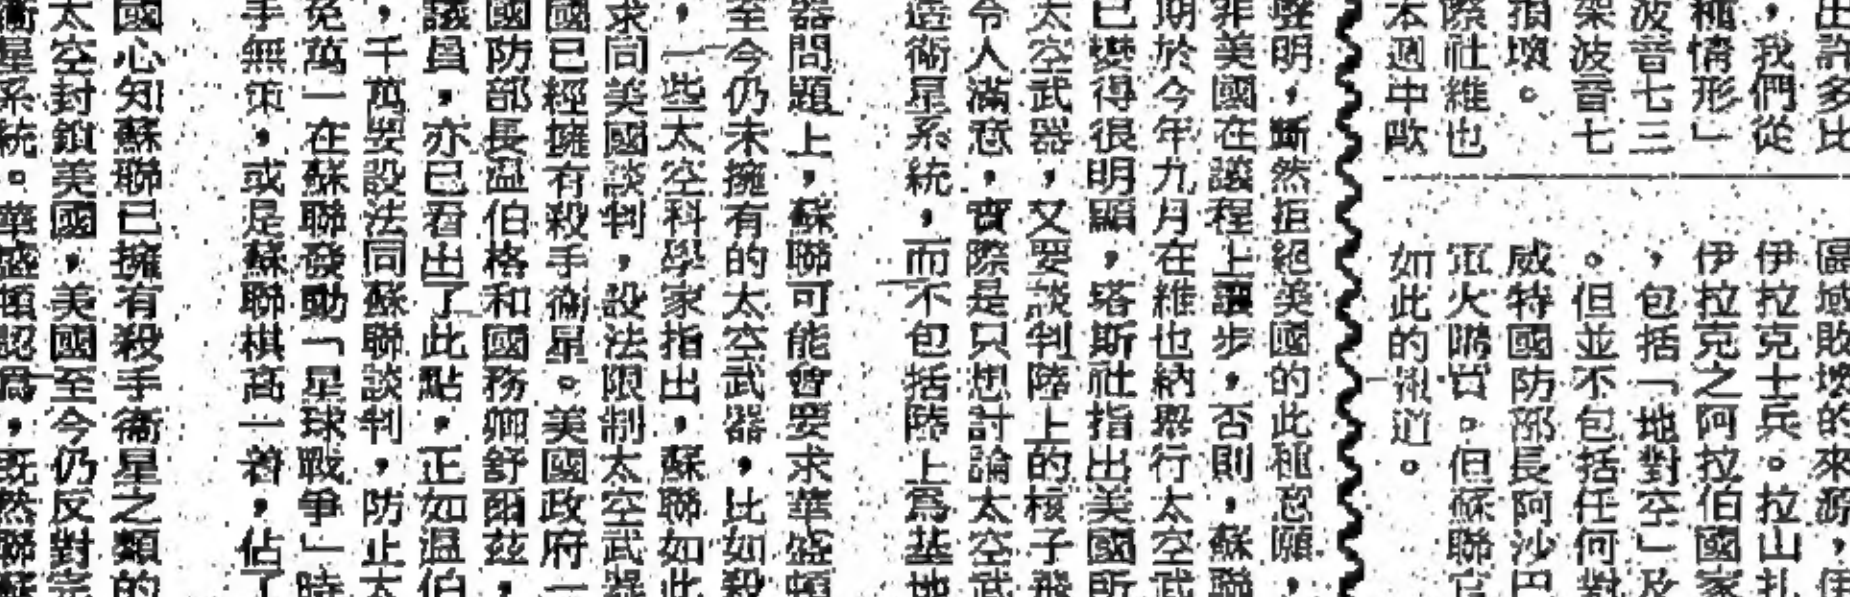 出許多比
，我們從
種情形」
波音七三
架波音七
損壞。
際社維也
本週中歐
區域敗壞的來源，伊
伊拉克士兵。拉山扎
伊拉克之阿拉伯國家
，包括「地對空」及
。但並不包括任何對
威特國防部長阿沙巴
軍火購買。但蘇聯官
如此的報道。
聲明，斷然拒絕美國的此種意願，
非美國在議程上讓步，否則，蘇聯
期於今年九月在維也納舉行太空武
已變得很明顯，塔斯社指出美國所
太空武器，又要談判陸上的核子飛
令人滿意，實際是只想討論太空武
造衛星系統，而不包括陸上爲基地
器問題上，蘇聯可能會要求華盛頓
至今仍未擁有的太空武器，比如殺
，一些太空科學家指出，蘇聯如此
求同美國談判，設法限制太空武器
國已經擁有殺手衛星。美國政府一
國防部長溫伯格和國務卿舒爾茲，
議員，亦已看出了此點，正如溫伯
，千萬要設法同蘇聯談判，防止太
免萬一在蘇聯發動「星球戰爭」時
手無策，或是蘇聯棋高一着，佔了
國心知蘇聯已擁有殺手衞星之類的
太空封鎖美國，美國至今仍反對完
衞星系統。華盛頓認爲，既然聯蘇